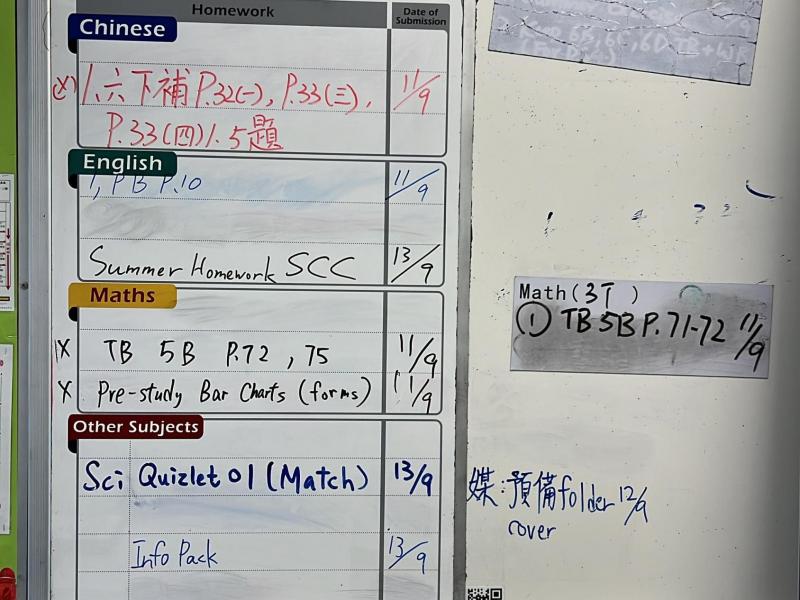 Homework
Date of Submission
Chinese
(X) 1. 六下補 P.32(一), P.33(三), 11/9
P.33(四) 1. 5題
English
1, PB P.10 11/9
Summer Homework SCC 13/9
Maths
X TB 5B P.72, 75 11/9
X Pre-study Bar Charts (forms) 11/9
Other Subjects
Sci Quizlet 01 (Match) 13/9
Info Pack 13/9
Math(3T)
① TB 5B P.71-72 11/9
媒:預備folder 12/9
cover